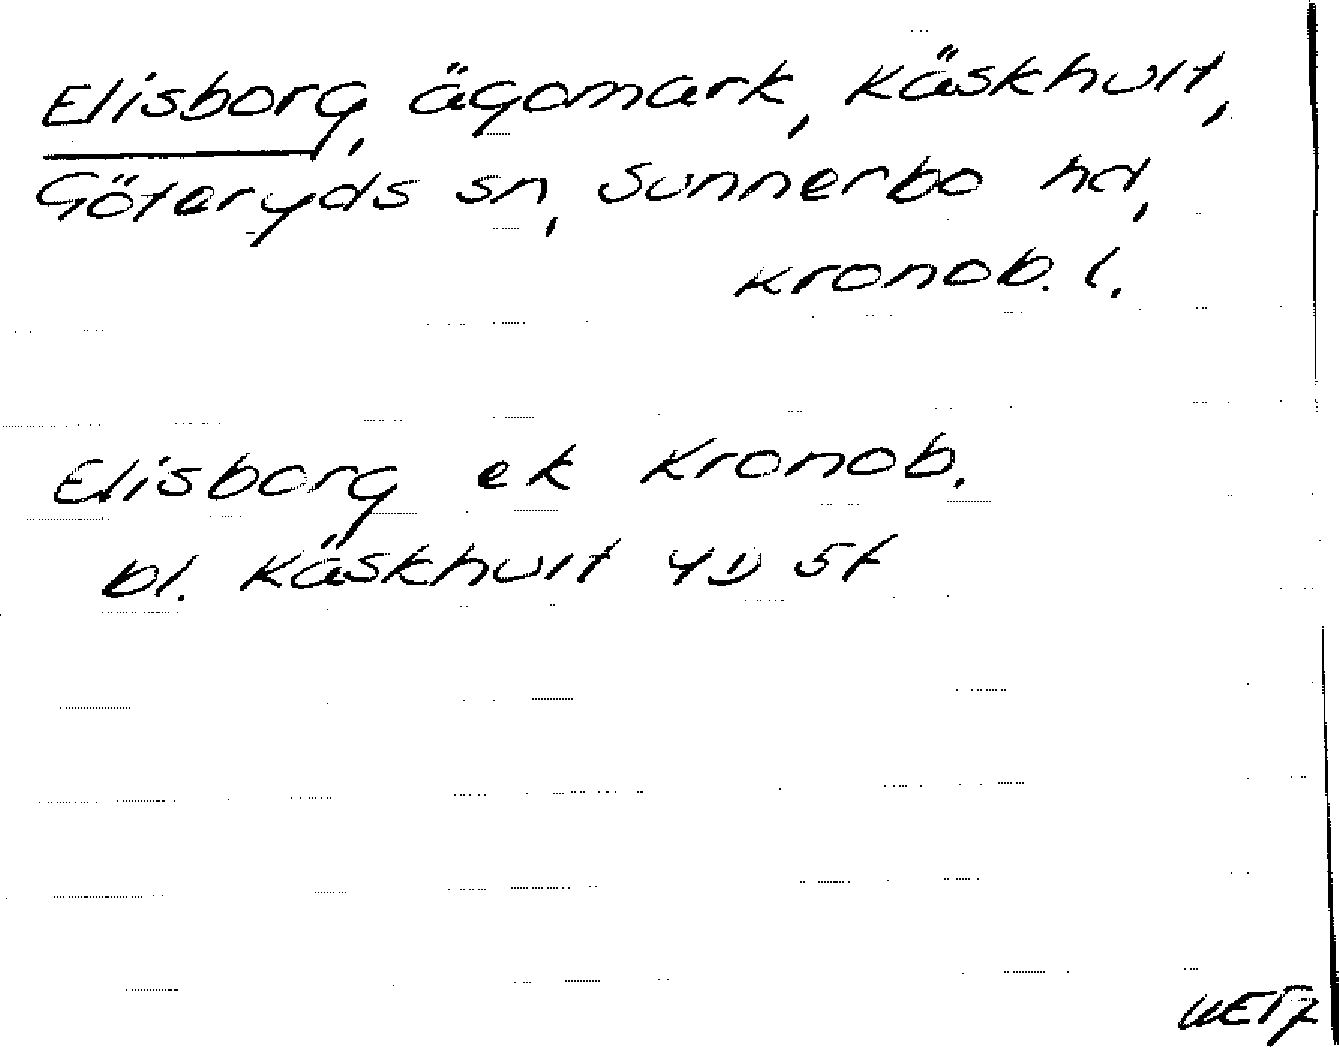 Elisborg, ägomark, Käskhult,
Göteryds sn, Sunnerbo hd,
Kronob. l.
Elisborg ek Kronob.
bl. Käskhult 4D 5f